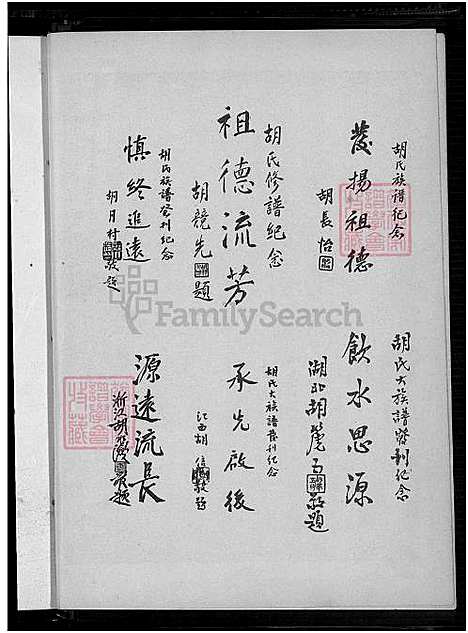 胡氏族譜紀念
發揚祖德
胡長怡
胡氏修譜紀念
祖德流芳
胡競先題
胡氏族譜發刊紀念
慎終追遠
胡月村敬題
胡氏大族譜發刊紀念
飲水思源
湖北胡題
胡氏大族譜發刊紀念
承先啟後
江西胡敬題
源遠流長
浙江胡敬題
FamilySearch